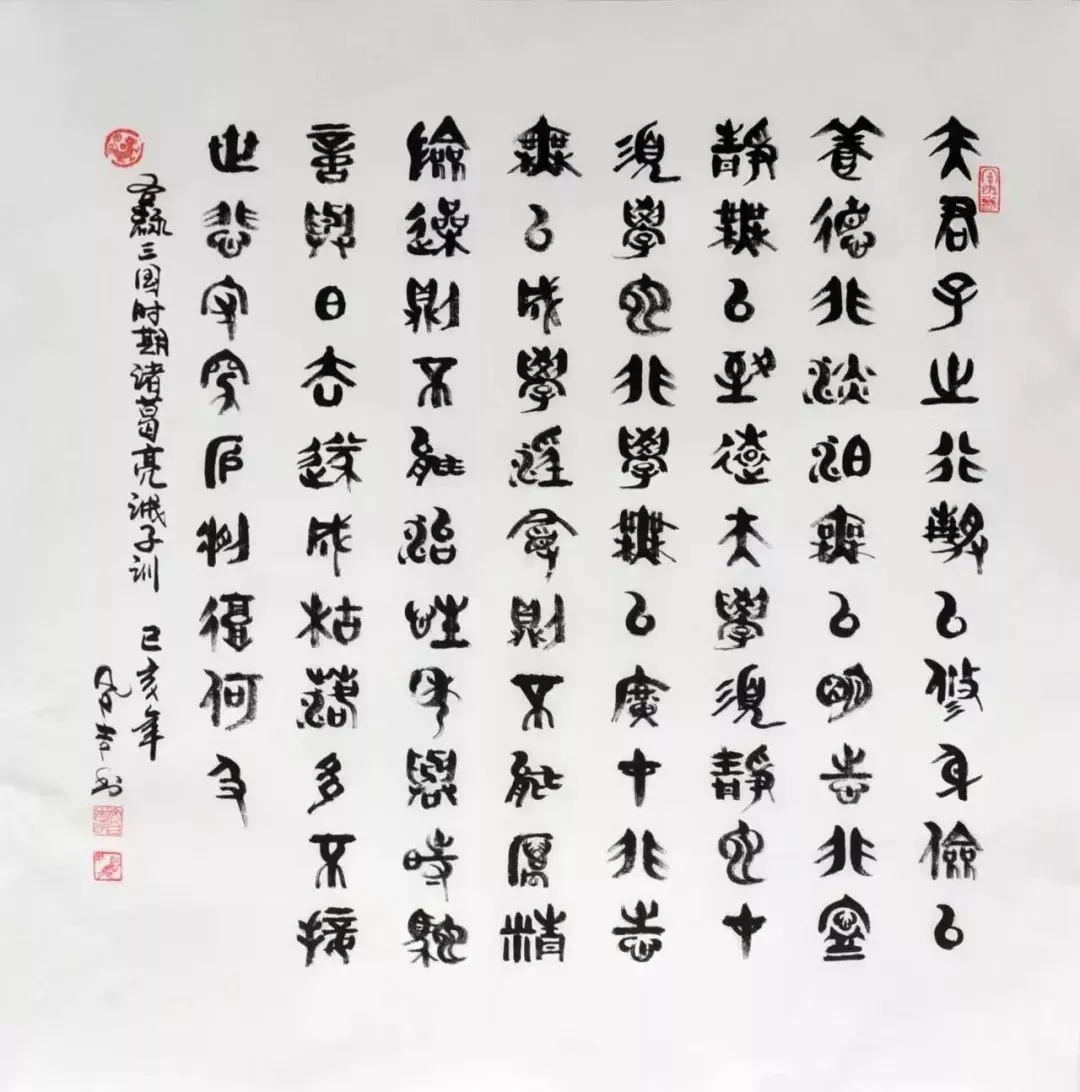 夫君子之行靜以修身儉以
養德非淡泊無以明志非寧
靜無以致遠夫學須靜也才
須學也非學無以廣才非志
無以成學淫慢則不能勵精
險躁則不能治性年與時馳
意與日去遂成枯落多不接
世悲守窮廬將復何及
右録三国时期诸葛亮诫子训 己亥年